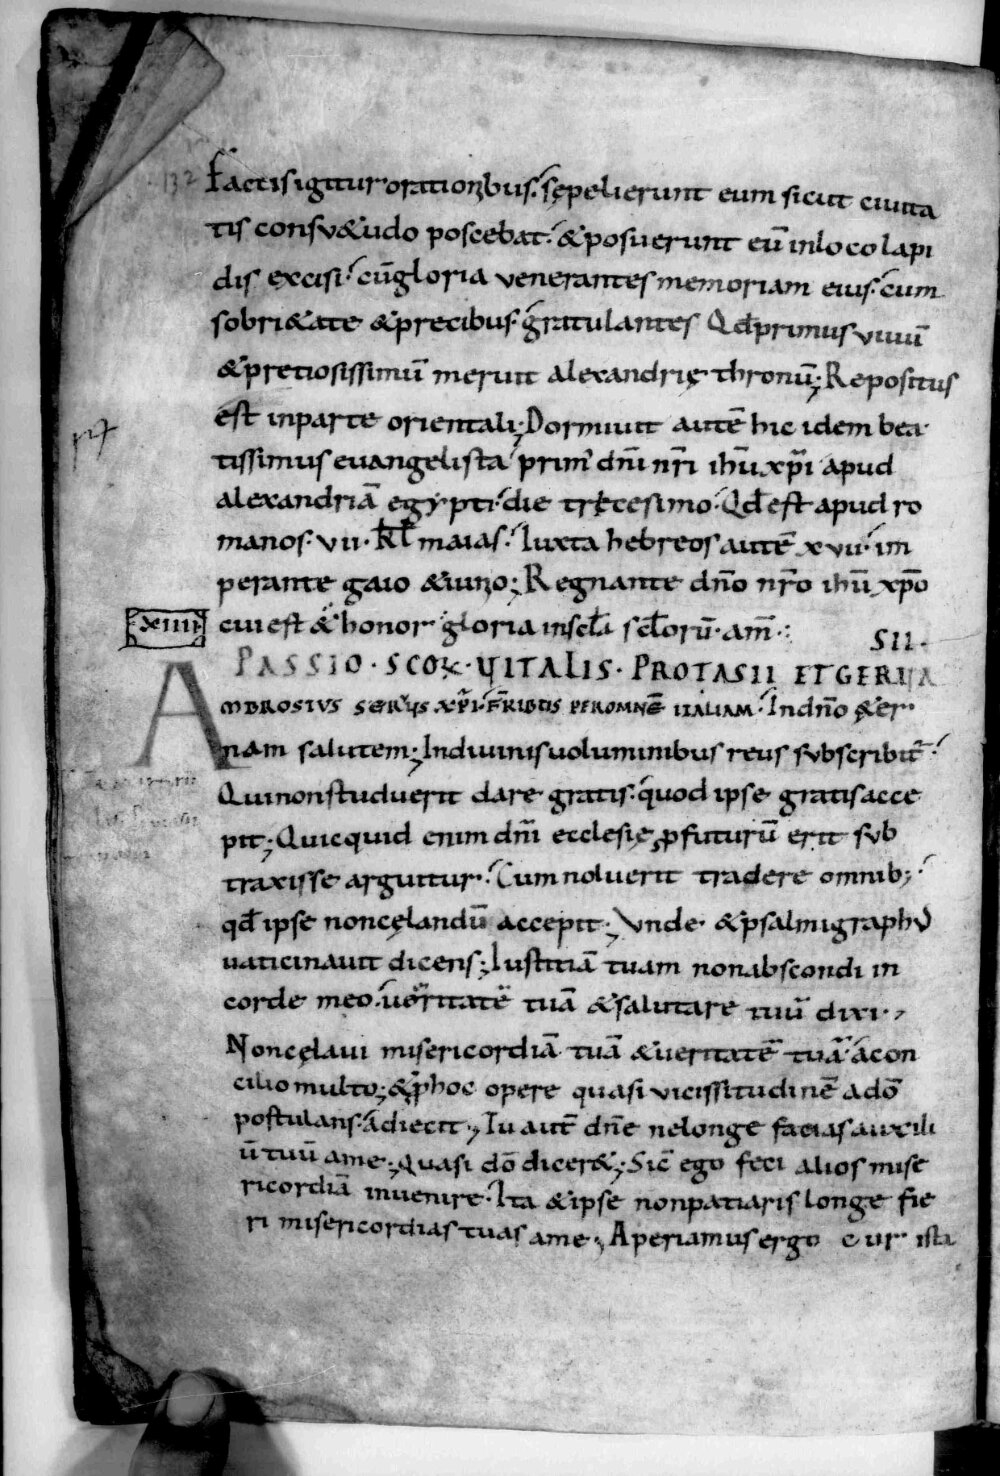 132 Factis igitur orationibus. sępelierunt eum sicut ciuita
tis consu&udo poscebat. & posuerunt eū in loco lapi
dis excisi. cū gloria venerantes memoriam eius. cum
sobri&ate & precibus. gratulantes Qd̄ primus uiuū
& pretiosissimū meruit alexandrię thronū; Repositus
est in parte orientali; Dormiuit autē hic idem bea
tissimus euangelista prim' dn̄i nr̄i ih̄u xp̄i apud
alexandriā egypti. die tricesimo. Qd̄ est apud ro
manos. vii. kl̄ maias. Iuxta hebreos autē xvii. im
perante gaio & iunio; Regnante dn̄o nr̄o ih̄u xp̄o
xiiii cui est & honor gloria in scl̄a scl̄orū. am̄.
SII.
PASSIO. SCOꝜ. VITALIS. PROTASII ET GERUA
AMBROSIVS SERVUS XP̄I. FR̄IBUS PER OMNĒ ITALIAM. In dn̄o & er
nam salutem; In diuinis uoluminibus reus subscribit̄.
Qui non studuerit dare gratis. quod ipse gratis acce
pit; Quicquid enim dn̄i ecclesię ꝓfuturū erit sub
traxisse arguitur. Cum noluerit tradere omnib;
qd̄ ipse non cęlandū accepit; Vnde & psalmigraphū
uaticinauit dicens; Iustitiā tuam non abscondi in
corde meo. ueritatē tuā & salutare tuū dixi.
Non cęlaui misericordiā tuā & ueritatē tuā. a con
cilio multo; & ꝑ hoc opere quasi vicissitudinē a dō
postulans. adiecit; Tu aut̄ dn̄e ne longe facias auxili
ū tuū a me; Quasi dō dicer&; Sic̄ ego feci alios mise
ricordiā inuenire. Ita & ipse non patiaris longe fie
ri misericordias tuas a me; Aperiamus ergo cur ista